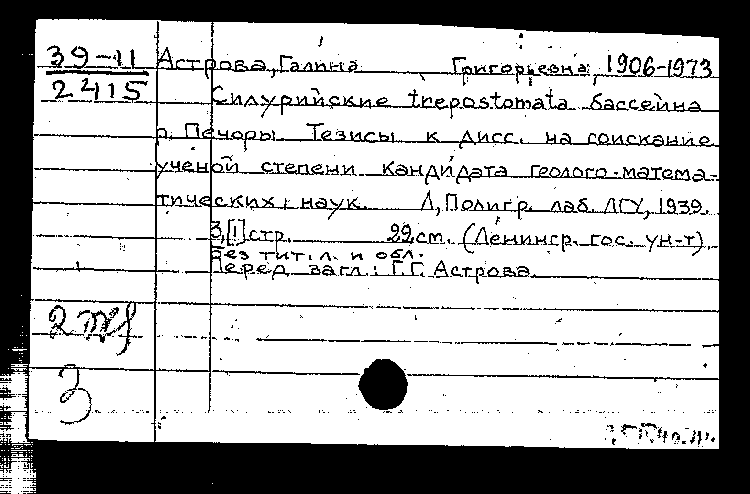 39-11 Астрова, Галина Григорьевна, 1906-1973
2415 Силурийские trepostomata бассейна
р. Печоры. Тезисы к дисс. на соискание
ученой степени кандидата геолого-матема-
тических наук. Л, Полигр. лаб. ЛГУ, 1939.
3,[1] стр. 22 см. (Ленингр. гос. ун-т).
Без тит. л. и обл.
Перед загл.: Г.Г. Астрова.
3